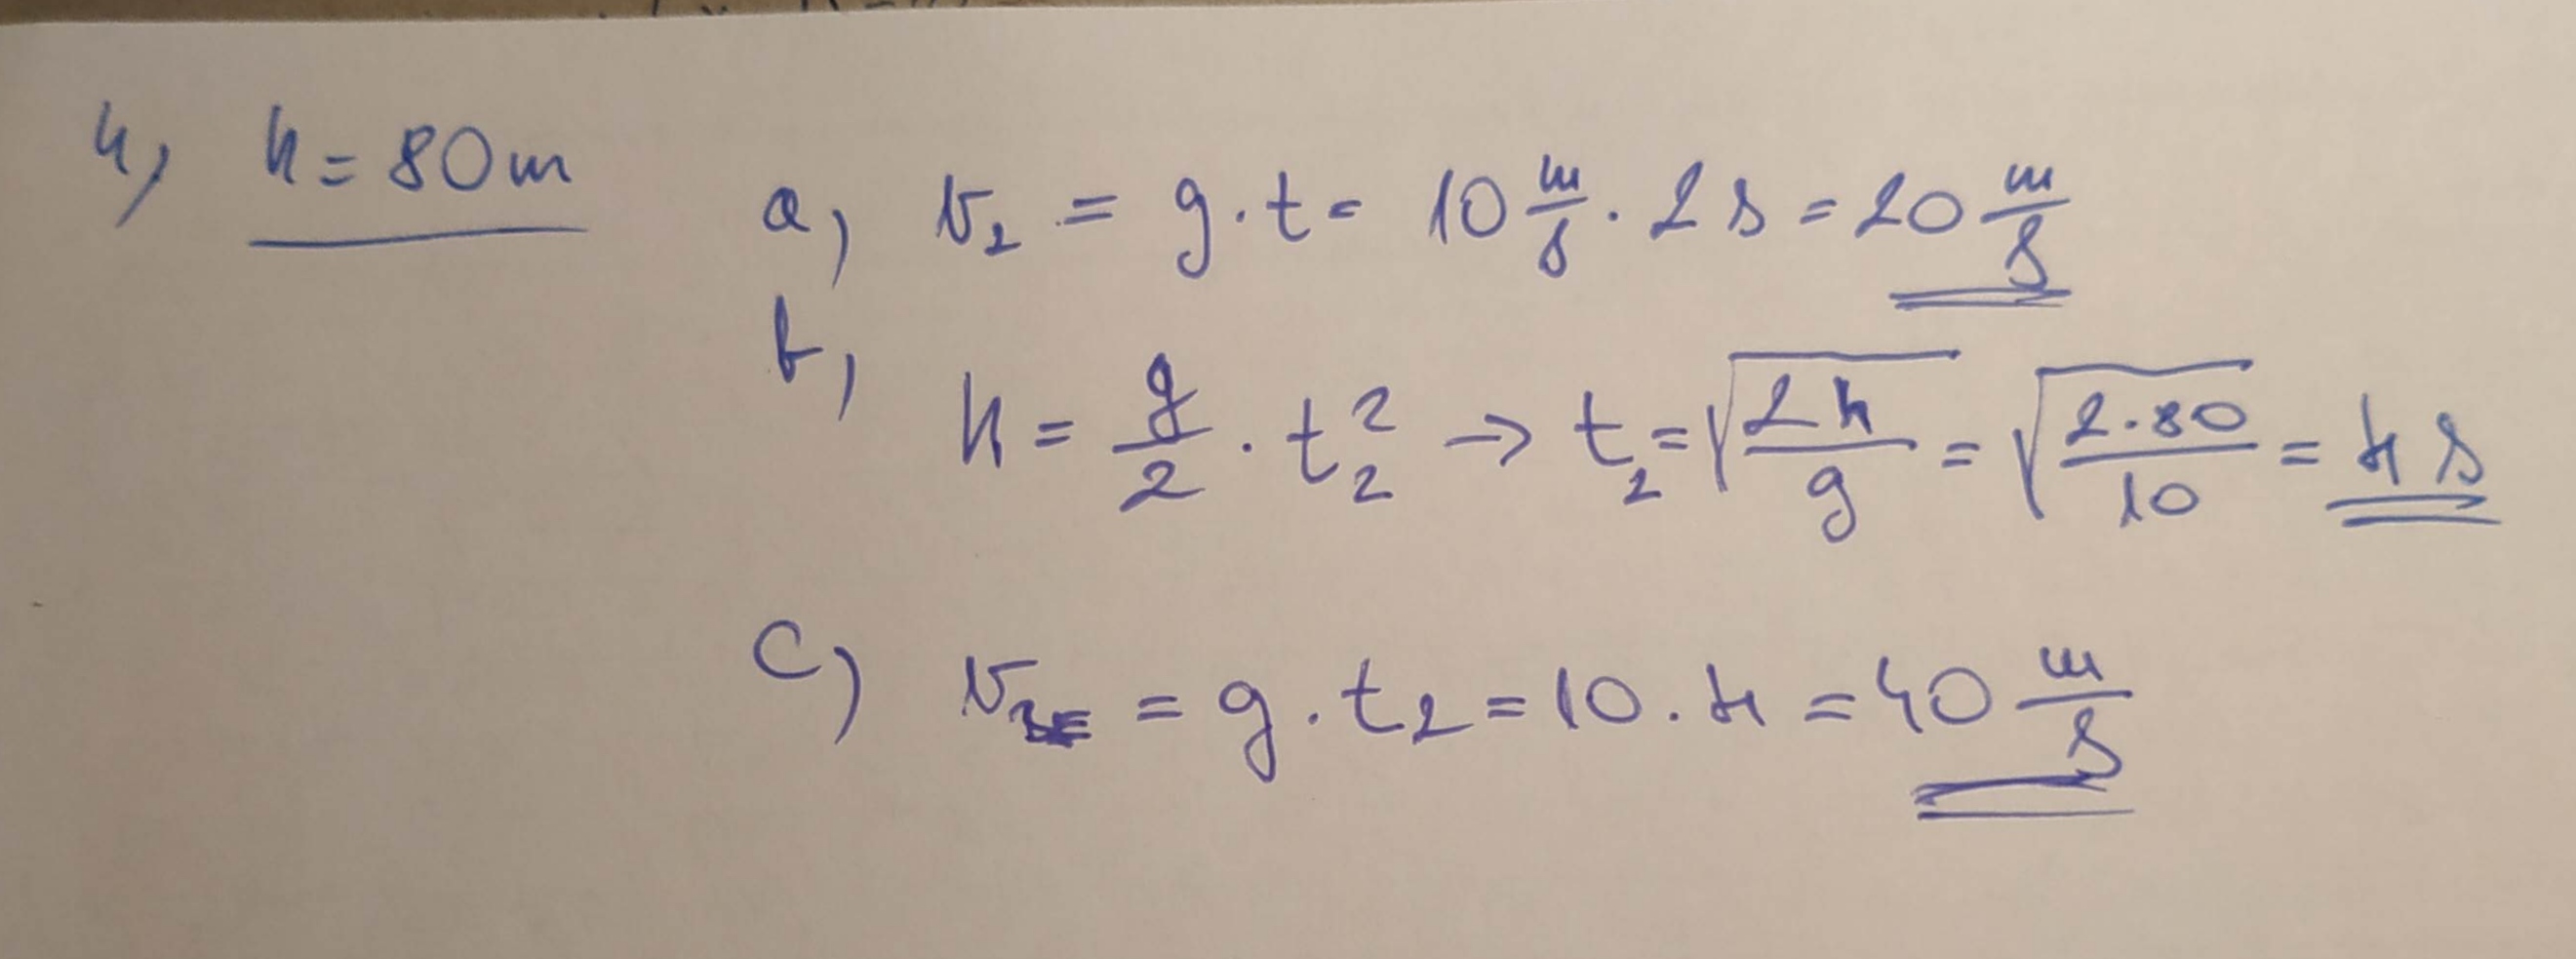 4) h = 80 m
a) v₂ = g · t = 10 m/s · 2 s = 20 m/s
b) h = g/2 · t₂² → t₂ = √(2h/g) = √(2·80/10) = 4 s
c) v = g · t₂ = 10 · 4 = 40 m/s